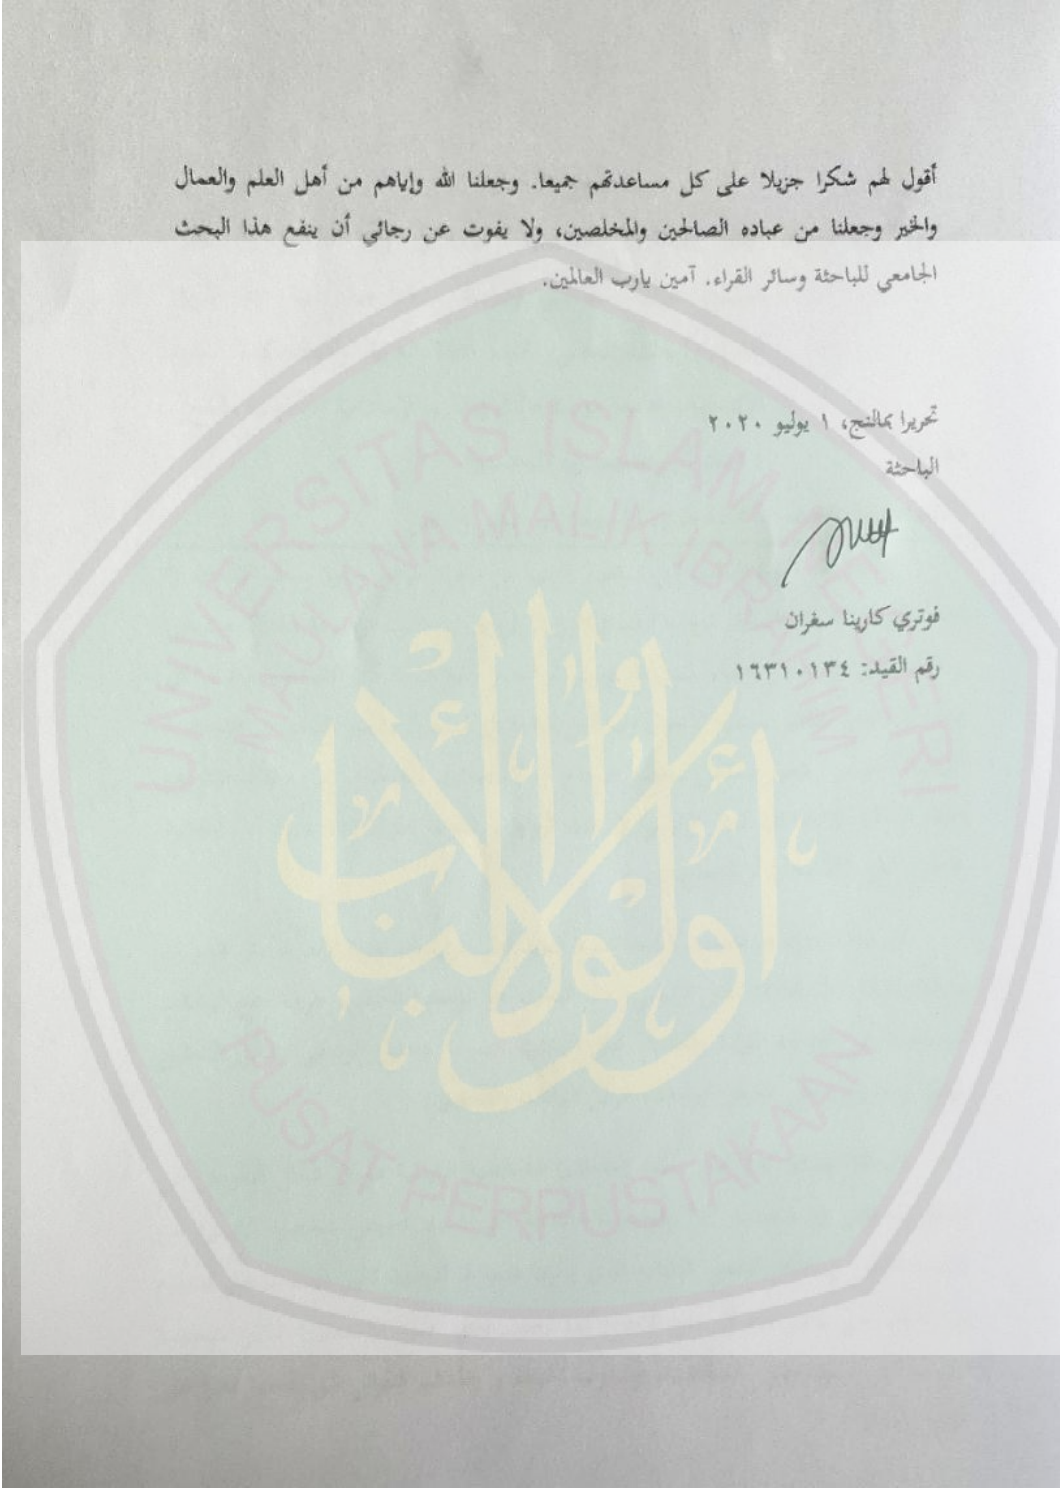 أقول لهم شكرا جزيلا على كل مساعدتهم جميعا. وجعلنا الله وإياهم من أهل العلم والعمال
والخير وجعلنا من عباده الصالحين والمخلصين، ولا يفوت عن رجائي أن ينفع هذا البحث
الجامعي للباحثة وسائر القراء. آمين يارب العالمين.
تحريرا بمالنج، ١ يوليو ٢٠٢٠
الباحثة
فوتري كارينا سفران
رقم القيد: ١٦٣١٠١٣٤
UNIVERSITAS ISLAM NEGERI
MAULANA MALIK IBRAHIM
أولو الألباب
PUSAT PERPUSTAKAAN